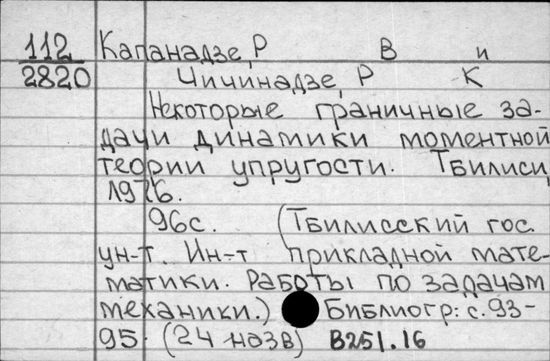 112 Капанадзе, Р В и
2820 Чичинадзе, Р К
Некоторые граничные за-
дачи динамики моментной
теории упругости. Тбилиси,
1976.
96с. (Тбилисский гос.
ун-т. Ин-т прикладной мате-
матики. Работы по задачам
механики.) Библиогр: с.93-
95. (24 назв) В251.16